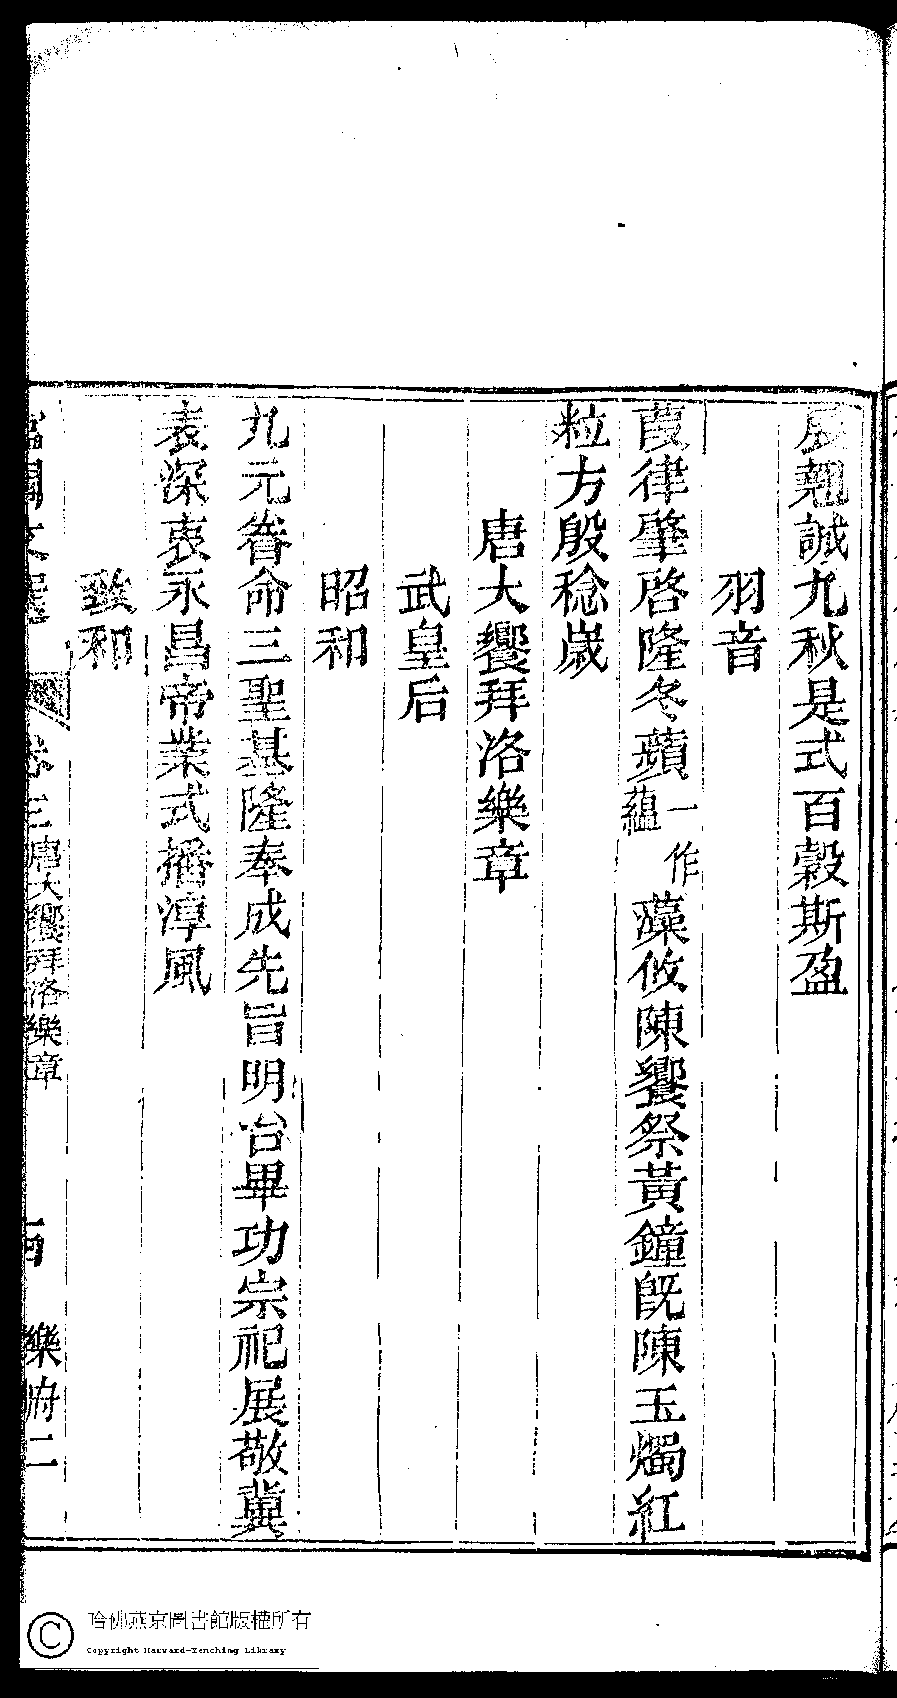 展翹誠九秋是式百穀斯盈
羽音
葭律肇啓隆冬蘋一作蘊藻攸陳饗祭黃鐘旣陳玉燭紅
粒方殷稔歲
唐大饗拜洛樂章
武皇后
昭和
九元眷命三聖基隆奉成先旨明台畢功宗祀展敬冀
表深衷永昌帝業式播淳風
致和
文選 卷三唐大饗拜洛樂章 樂府二
哈佛燕京圖書館版權所有
Copyright Harvard-Yenching Library